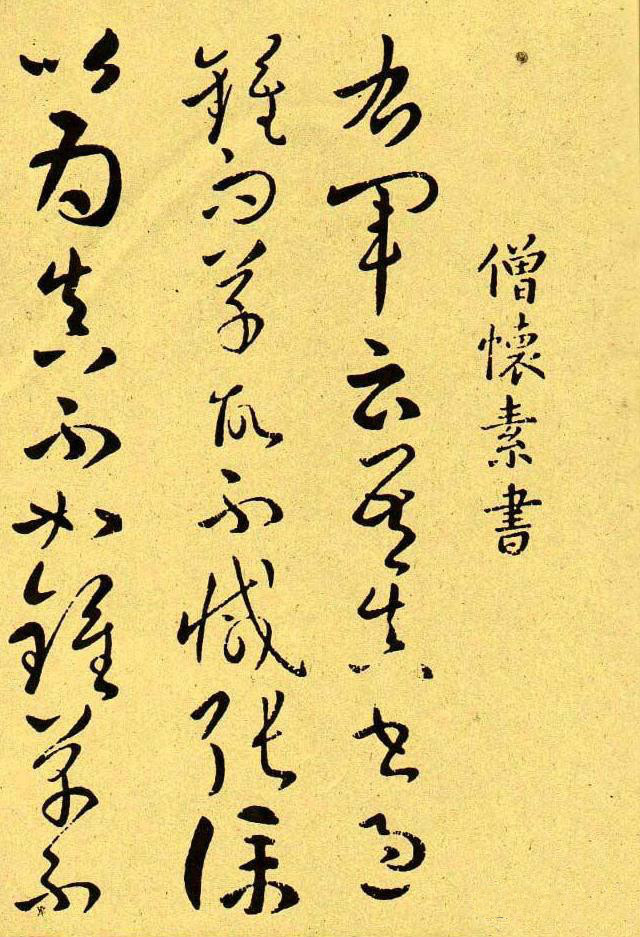 僧懷素書
右軍云吾真書過
鍾而草故不減張僕
以為真不如鍾草不